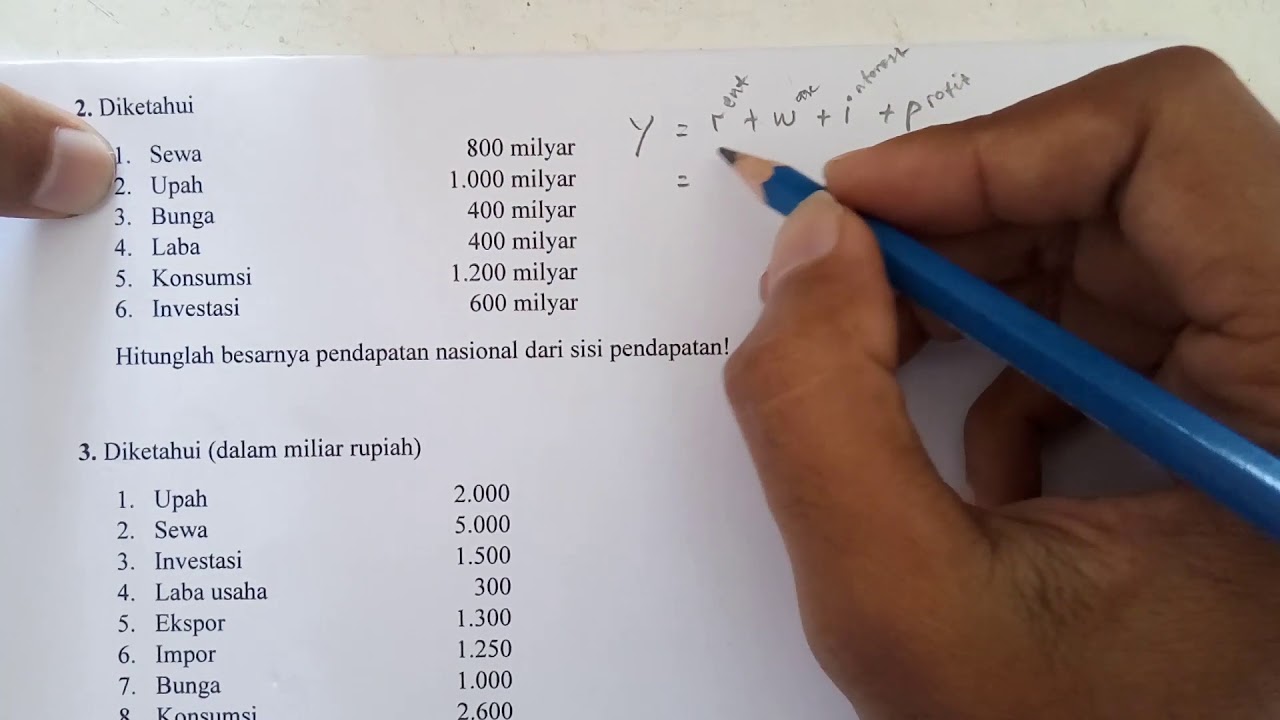 2. Diketahui
1. Sewa 800 milyar
2. Upah 1.000 milyar
3. Bunga 400 milyar
4. Laba 400 milyar
5. Konsumsi 1.200 milyar
6. Investasi 600 milyar
Hitunglah besarnya pendapatan nasional dari sisi pendapatan!
Y = rent + w + interest + profit
=
3. Diketahui (dalam miliar rupiah)
1. Upah 2.000
2. Sewa 5.000
3. Investasi 1.500
4. Laba usaha 300
5. Ekspor 1.300
6. Impor 1.250
7. Bunga 1.000
8. Konsumsi 2.600